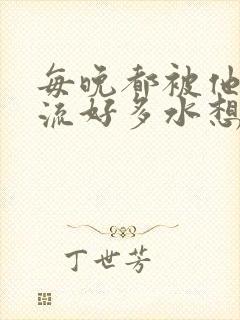 每晚都被他
流好多水想
丁世芳